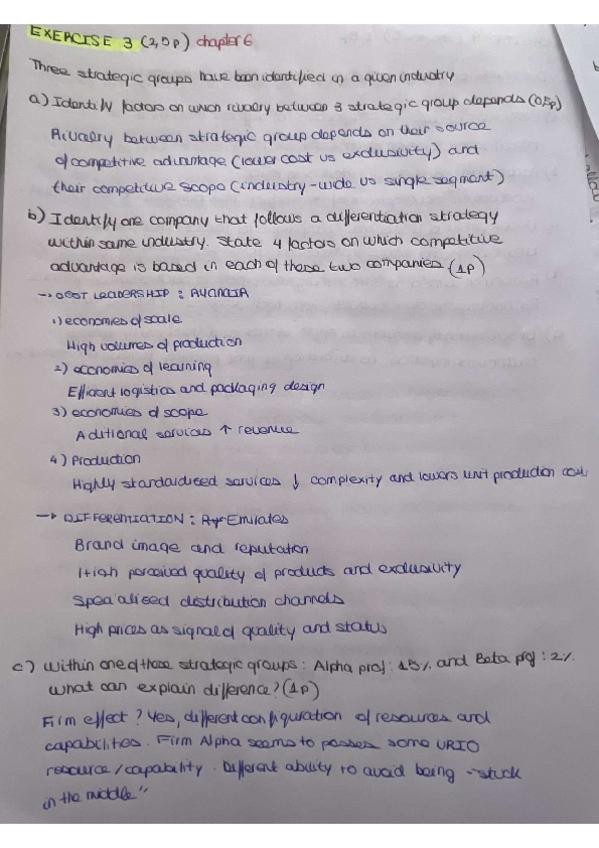 EXERCISE 3 (2,5p) chapter 6
Three strategic groups have been identified in a given industry
a) Identify factors on which rivalry between 3 strategic group depends (0,5p)
Rivalry between strategic group depends on their source
of competitive advantage (lower cost vs exclusivity) and
their competitive scope (industry-wide vs single segment)
b) Identify one company that follows a differentiation strategy
within same industry. State 4 factors on which competitive
advantage is based in each of these two companies (1p)
→ COST LEADERSHIP: RYANAIR
1) economies of scale
High volumes of production
2) economies of learning
Efficient logistics and packaging design
3) economies of scope
Aditional services ↑ revenue
4) Production
Highly standardised services ↓ complexity and lowers unit production cost
→ DIFFERENTIATION: Emirates
Brand image and reputation
High perceived quality of products and exclusivity
Specialised distribution channels
High prices as signal of quality and status
c) Within one of these strategic groups: Alpha prof: 15% and Beta prof: 2%.
What can explain difference? (1p)
Firm effect? Yes, different configuration of resources and
capabilities. Firm Alpha seems to posses some VRIO
resource/capability. Different ability to avoid being "stuck
in the middle"